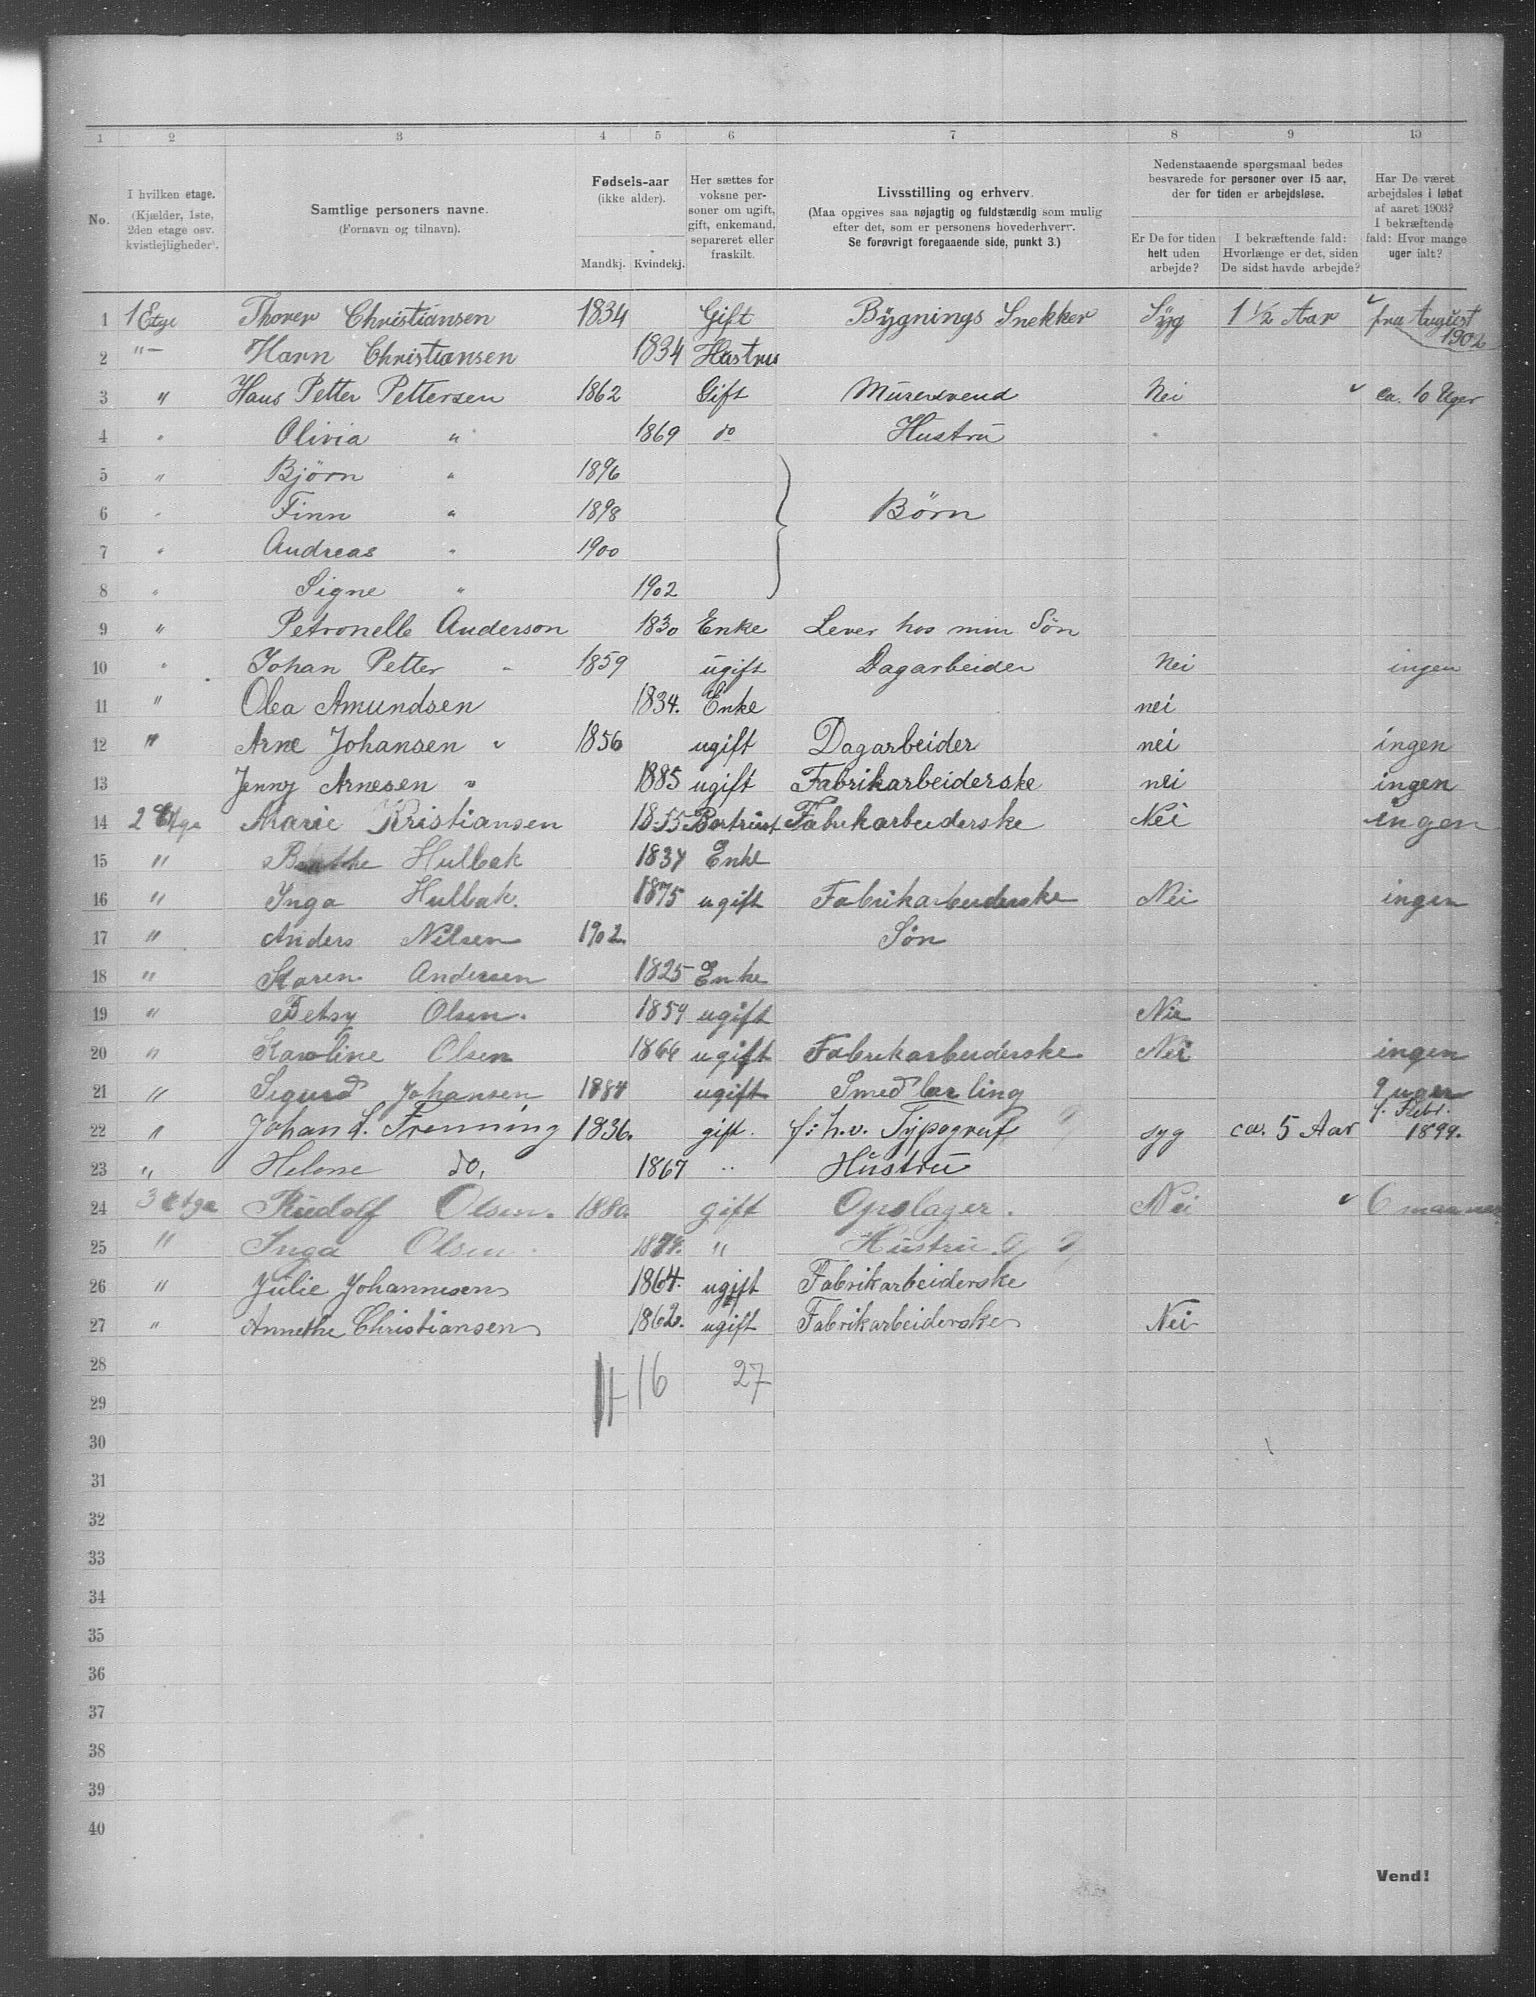 1 2 3 4 5 6 7 8 9 10
No.
I hvilken etage.
(Kjælder, 1ste,
2den etage osv.
kvistlejligheder).
Samtlige personers navne.
(Fornavn og tilnavn).
Fødsels-aar
(ikke alder).
Mandkj. Kvindekj.
Her sættes for
voksne per-
soner om ugift,
gift, enkemand,
separeret eller
fraskilt.
Livsstilling og erhverv.
(Maa opgives saa nøjagtig og fuldstærdig som mulig
efter det, som er personens hovederhverv.
Se forøvrigt foregaaende side, punkt 3.)
Nedenstaaende spørgsmaal bedes
besvarede for personer over 15 aar,
der for tiden er arbejdsløse.
Er De for tiden
helt uden
arbejde?
I bekræftende fald:
Hvorlænge er det, siden
De sidst havde arbejde?
Har De været
arbejdsløs i løbet
af aaret 1903?
I bekræftende
fald: Hvor mange
uger ialt?
1 1 Etge Thorer Christiansen 1834 Gift Bygnings Snekker Syg 1 1/2 Aar fra August 1902
2 "– Harn Christiansen 1834 Hustru
3 " Hans Petter Pettersen 1862 Gift Murersvend Nei ca. 10 Uger
4 " Olivia " 1869 do Hustru
5 " Bjørn " 1896
6 " Finn " 1898 Børn
7 " Andreas " 1900
8 " Signe " 1902
9 " Petronelle Anderson 1830 Enke Lever hos min Søn
10 " Johan Petter " 1859 ugift Dagarbeider Nei ingen
11 " Olea Amundsen 1834. Enke nei
12 " Arne Johansen " 1856 ugift Dagarbeider nei ingen
13 Jenny Arnesen " 1885 ugift Fabrikarbeiderske nei ingen
14 2 Etge Marie Kristiansen 1855 Fabrikarbeiderske Nei ingen
15 " Hulbak 1834 Enke
16 " Inga Hulbak. 1875 ugift Fabrikarbeiderske Nei ingen
17 " Anders Nilsen 1902. Søn
18 " Karen Andersen 1825 Enke
19 " Betsy Olsen. 1859 ugift Nie
20 " Karoline Olsen 1866 ugift Fabrikarbeiderske Nei ingen
21 " Sigurd Johansen 1884 ugift Smed lærling 9 uger
22 " Johan L. Frenning 1836. gift. f:h.v. Typograf syg ca. 5 Aar f. Febr. 1899.
23 " Helene do. 1867 " Hustru
24 3 Etge Rudolf Olsen. 1880. gift Opslager. Nei 6 maaneder
25 " Inga Olsen. 1879. " Hustru
26 " Julie Johannesen 1864. ugift Fabrikarbeiderske
27 " Annethe Christiansen 1862. ugift Fabrikarbeiderske Nei
28 11 16 27
29
30
31
32
33
34
35
36
37
38
39
40
Vend!